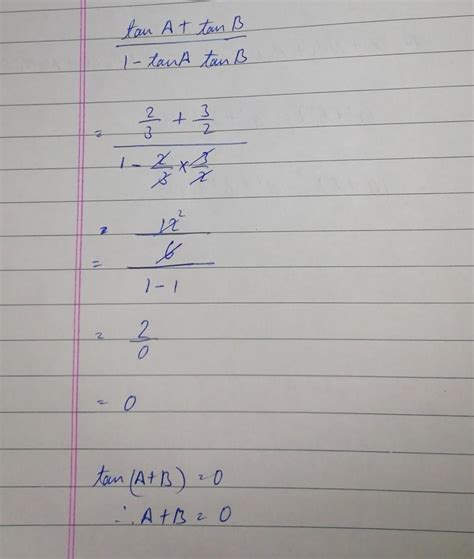 tan A + tan B
1 - tanA tanB
= 2/3 + 3/2
1 - 2/3 × 3/2
= 12 2
= 6
1 - 1
= 2/0
= 0
tan(A+B) = 0
∴ A+B = 0